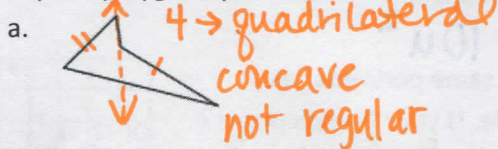 a.
4 → quadrilateral
concave
not regular